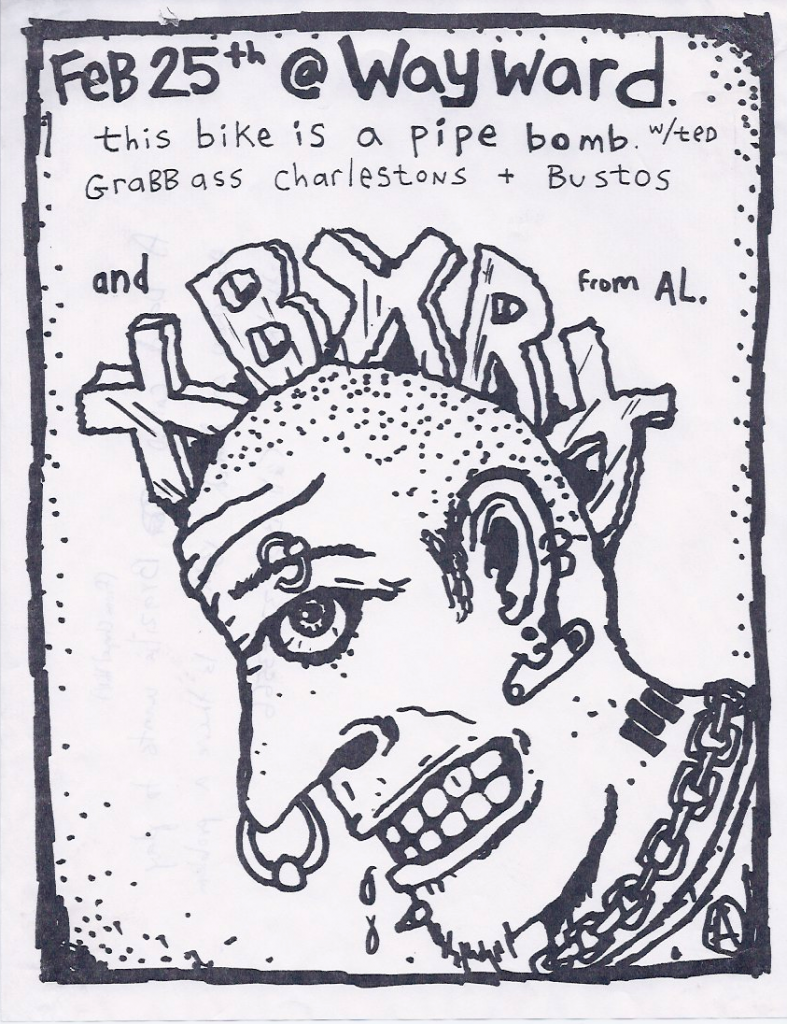 FeB 25th @ Wayward.
this bike is a pipe bomb. w/ teD
GraBB ass charlestons + Bustos
and XBXRX from AL.